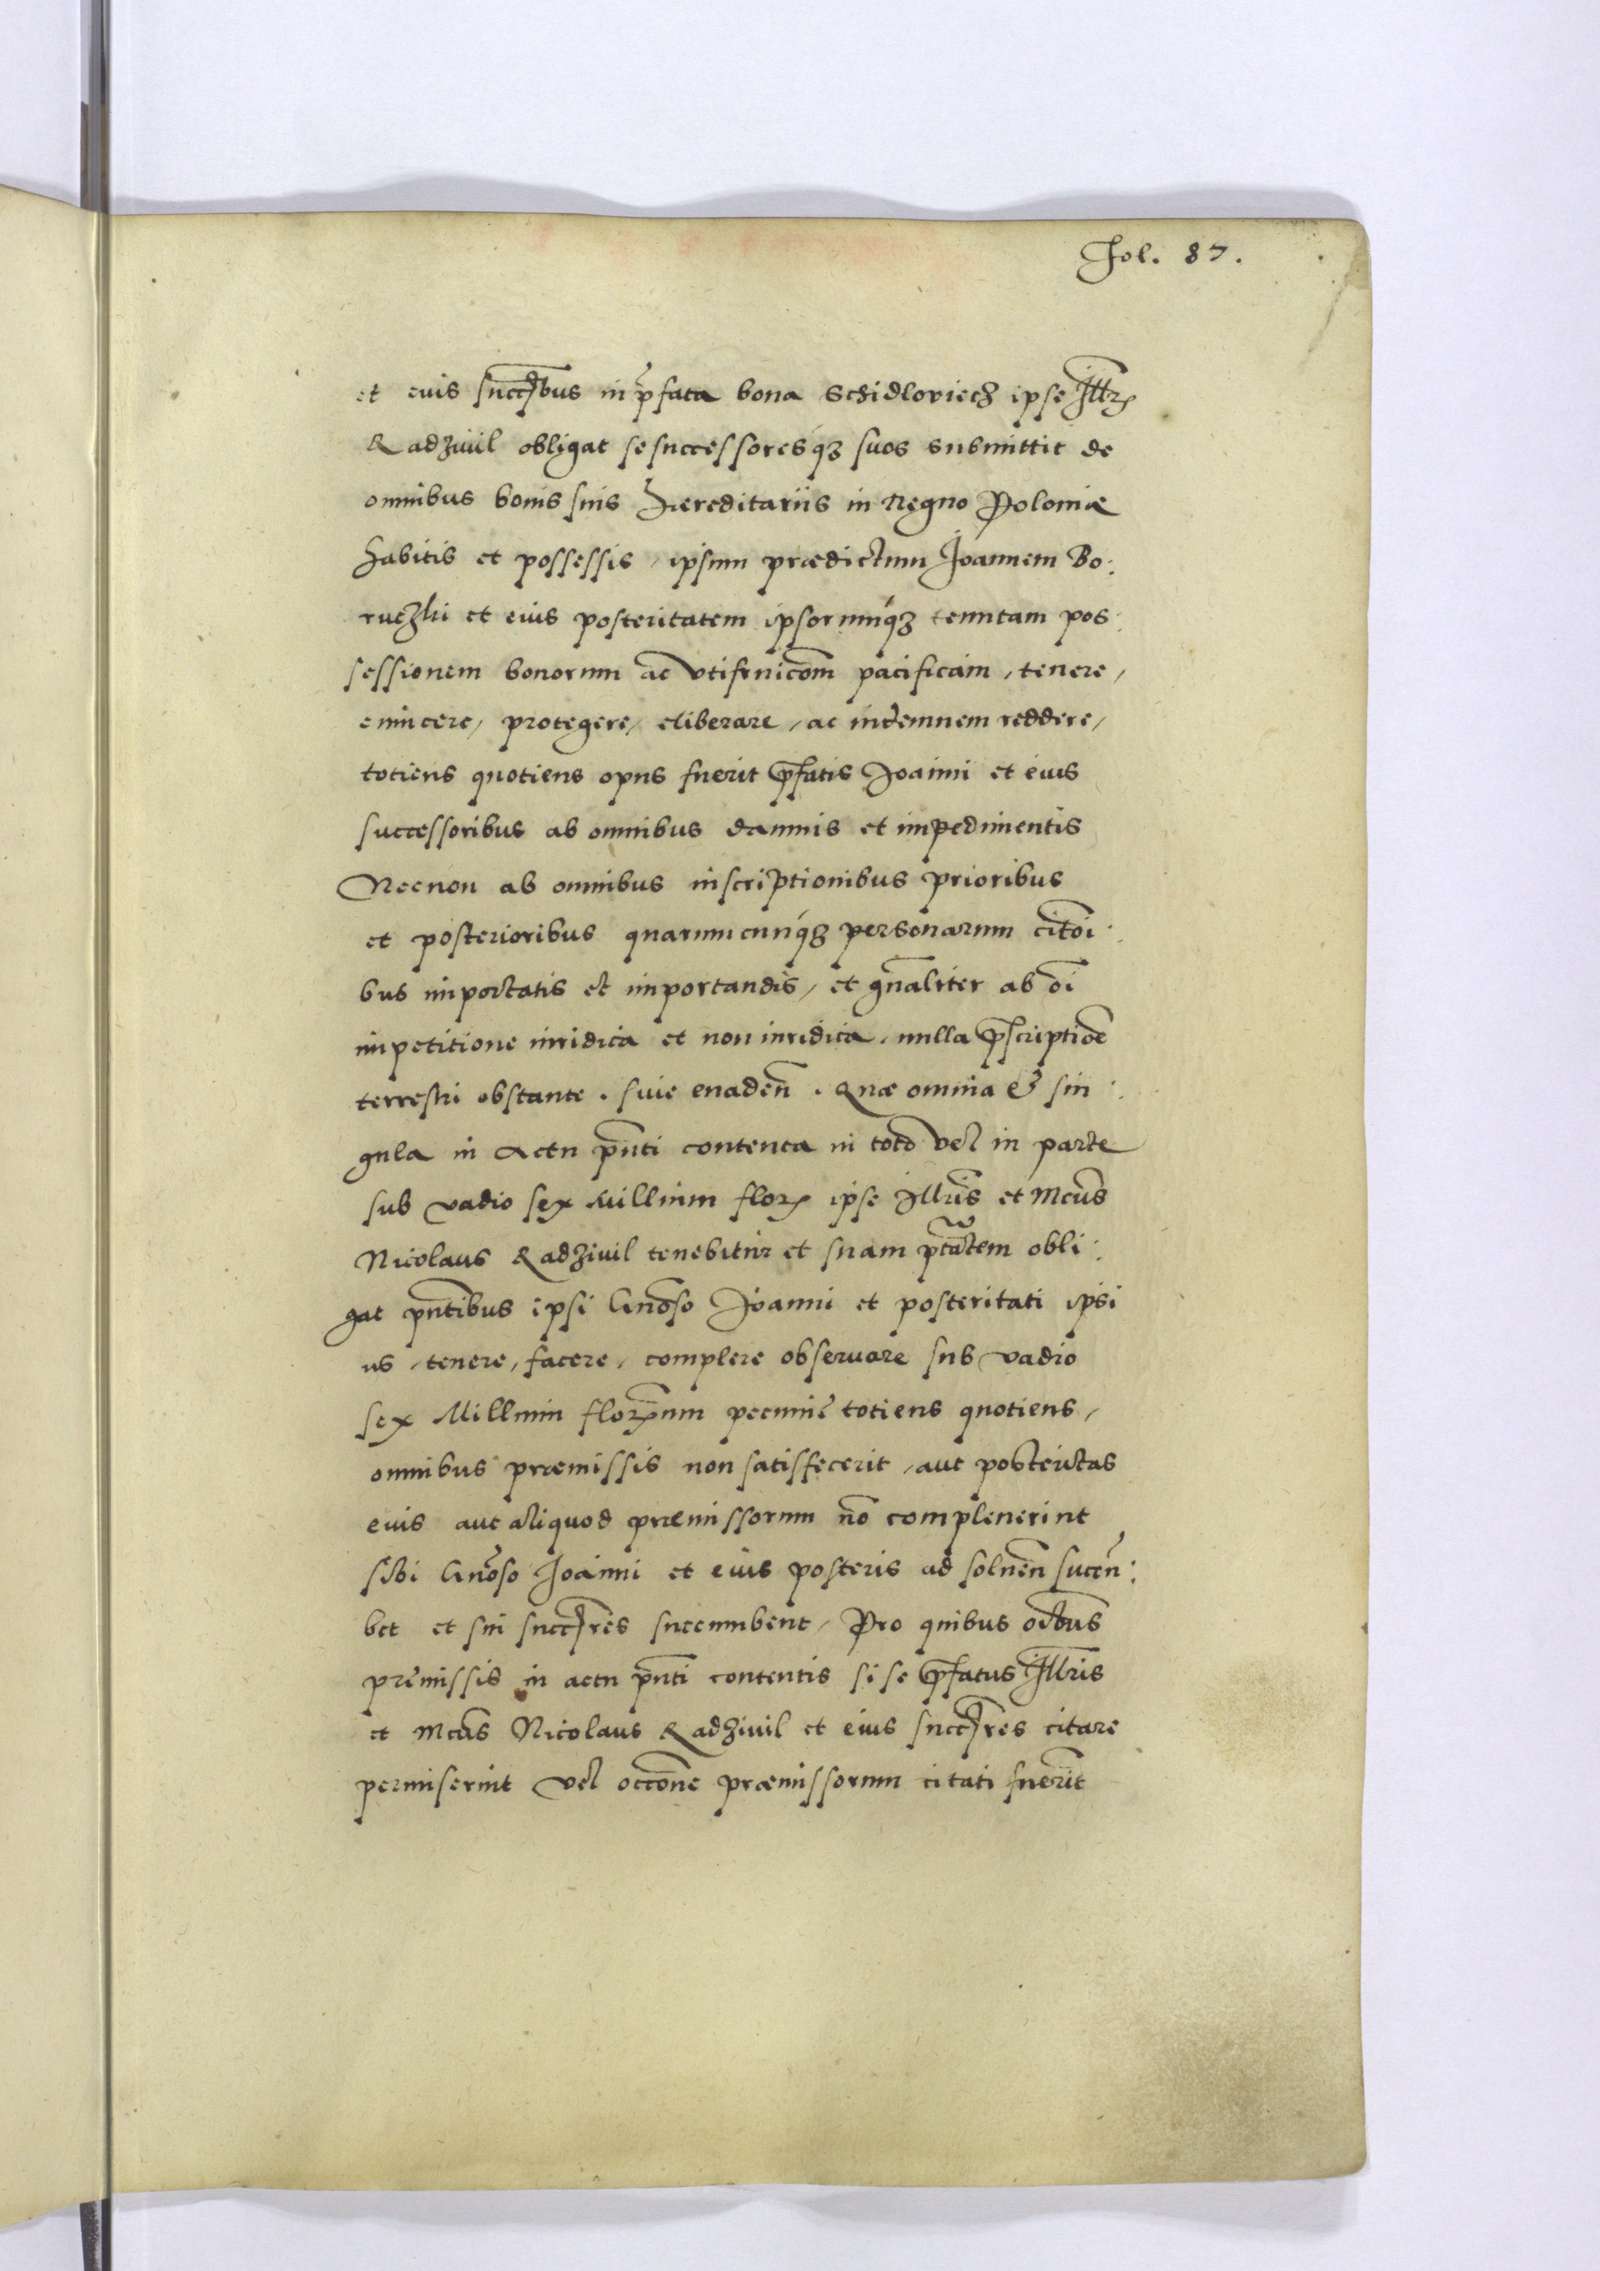 Fol. 87.
et eius succ̃bus in p̃fata bona Schidloviech ipse Illr̃
Radzivil obligat se successoresq́ȝ suos submittit de
omnibus bonis suis hæreditariis in Regno Poloniæ
habitis et possessis, ipsum prædictum Joannem Bo:
ruczki et eius posteritatem ipsorumq́ȝ tenutam pos:
sessionem bonorum ac vtifruicõm pacificam, tenere,
euincere, protegere, eliberare, ac indemnem reddere,
totiens quotiens opus fuerit p̃fatis Joanni et eius
successoribus ab omnibus damnis et impedimentis
Necnon ab omnibus inscriptionibus prioribus
et posterioribus quarumcunq́ȝ personarum citõi:
bus importatis et importandis, et gñaliter ab õi
impetitione iuridica et non iuridica, nulla p̃scriptiõe
terrestri obstante. siue euadeñ. Quæ omnia & sin:
gula in Actu p̃nti contenta in toto vel in parte
sub vadio sex Millium flor̃ ipse Illris̃ et Mcus̃
Nicolaus Radzivil tenebitur et suam p̃tatem obli:
gat p̃ntibus ipsi Gnõso Joanni et posteritati ipsi
us, tenere, facere, complere obseruare sub vadio
sex Millium flor̃num pecunię totiens quotiens,
omnibus præmissis non satisfecerit, aut posteritas
eius aut aliquod præmissorum nõ compleuerint
sibi Gnõso Joanni et eius posteris ad solueñ sucũ:
bet et sui succ̃res succumbent, Pro quibus oĩbus
premissis in actu p̃nti contentis si se p̃fatus Illris̃
et Mcus̃ Nicolaus Radzivil et eius succ̃res citare
permiserint vel occõne præmissorum citati fuerĩt